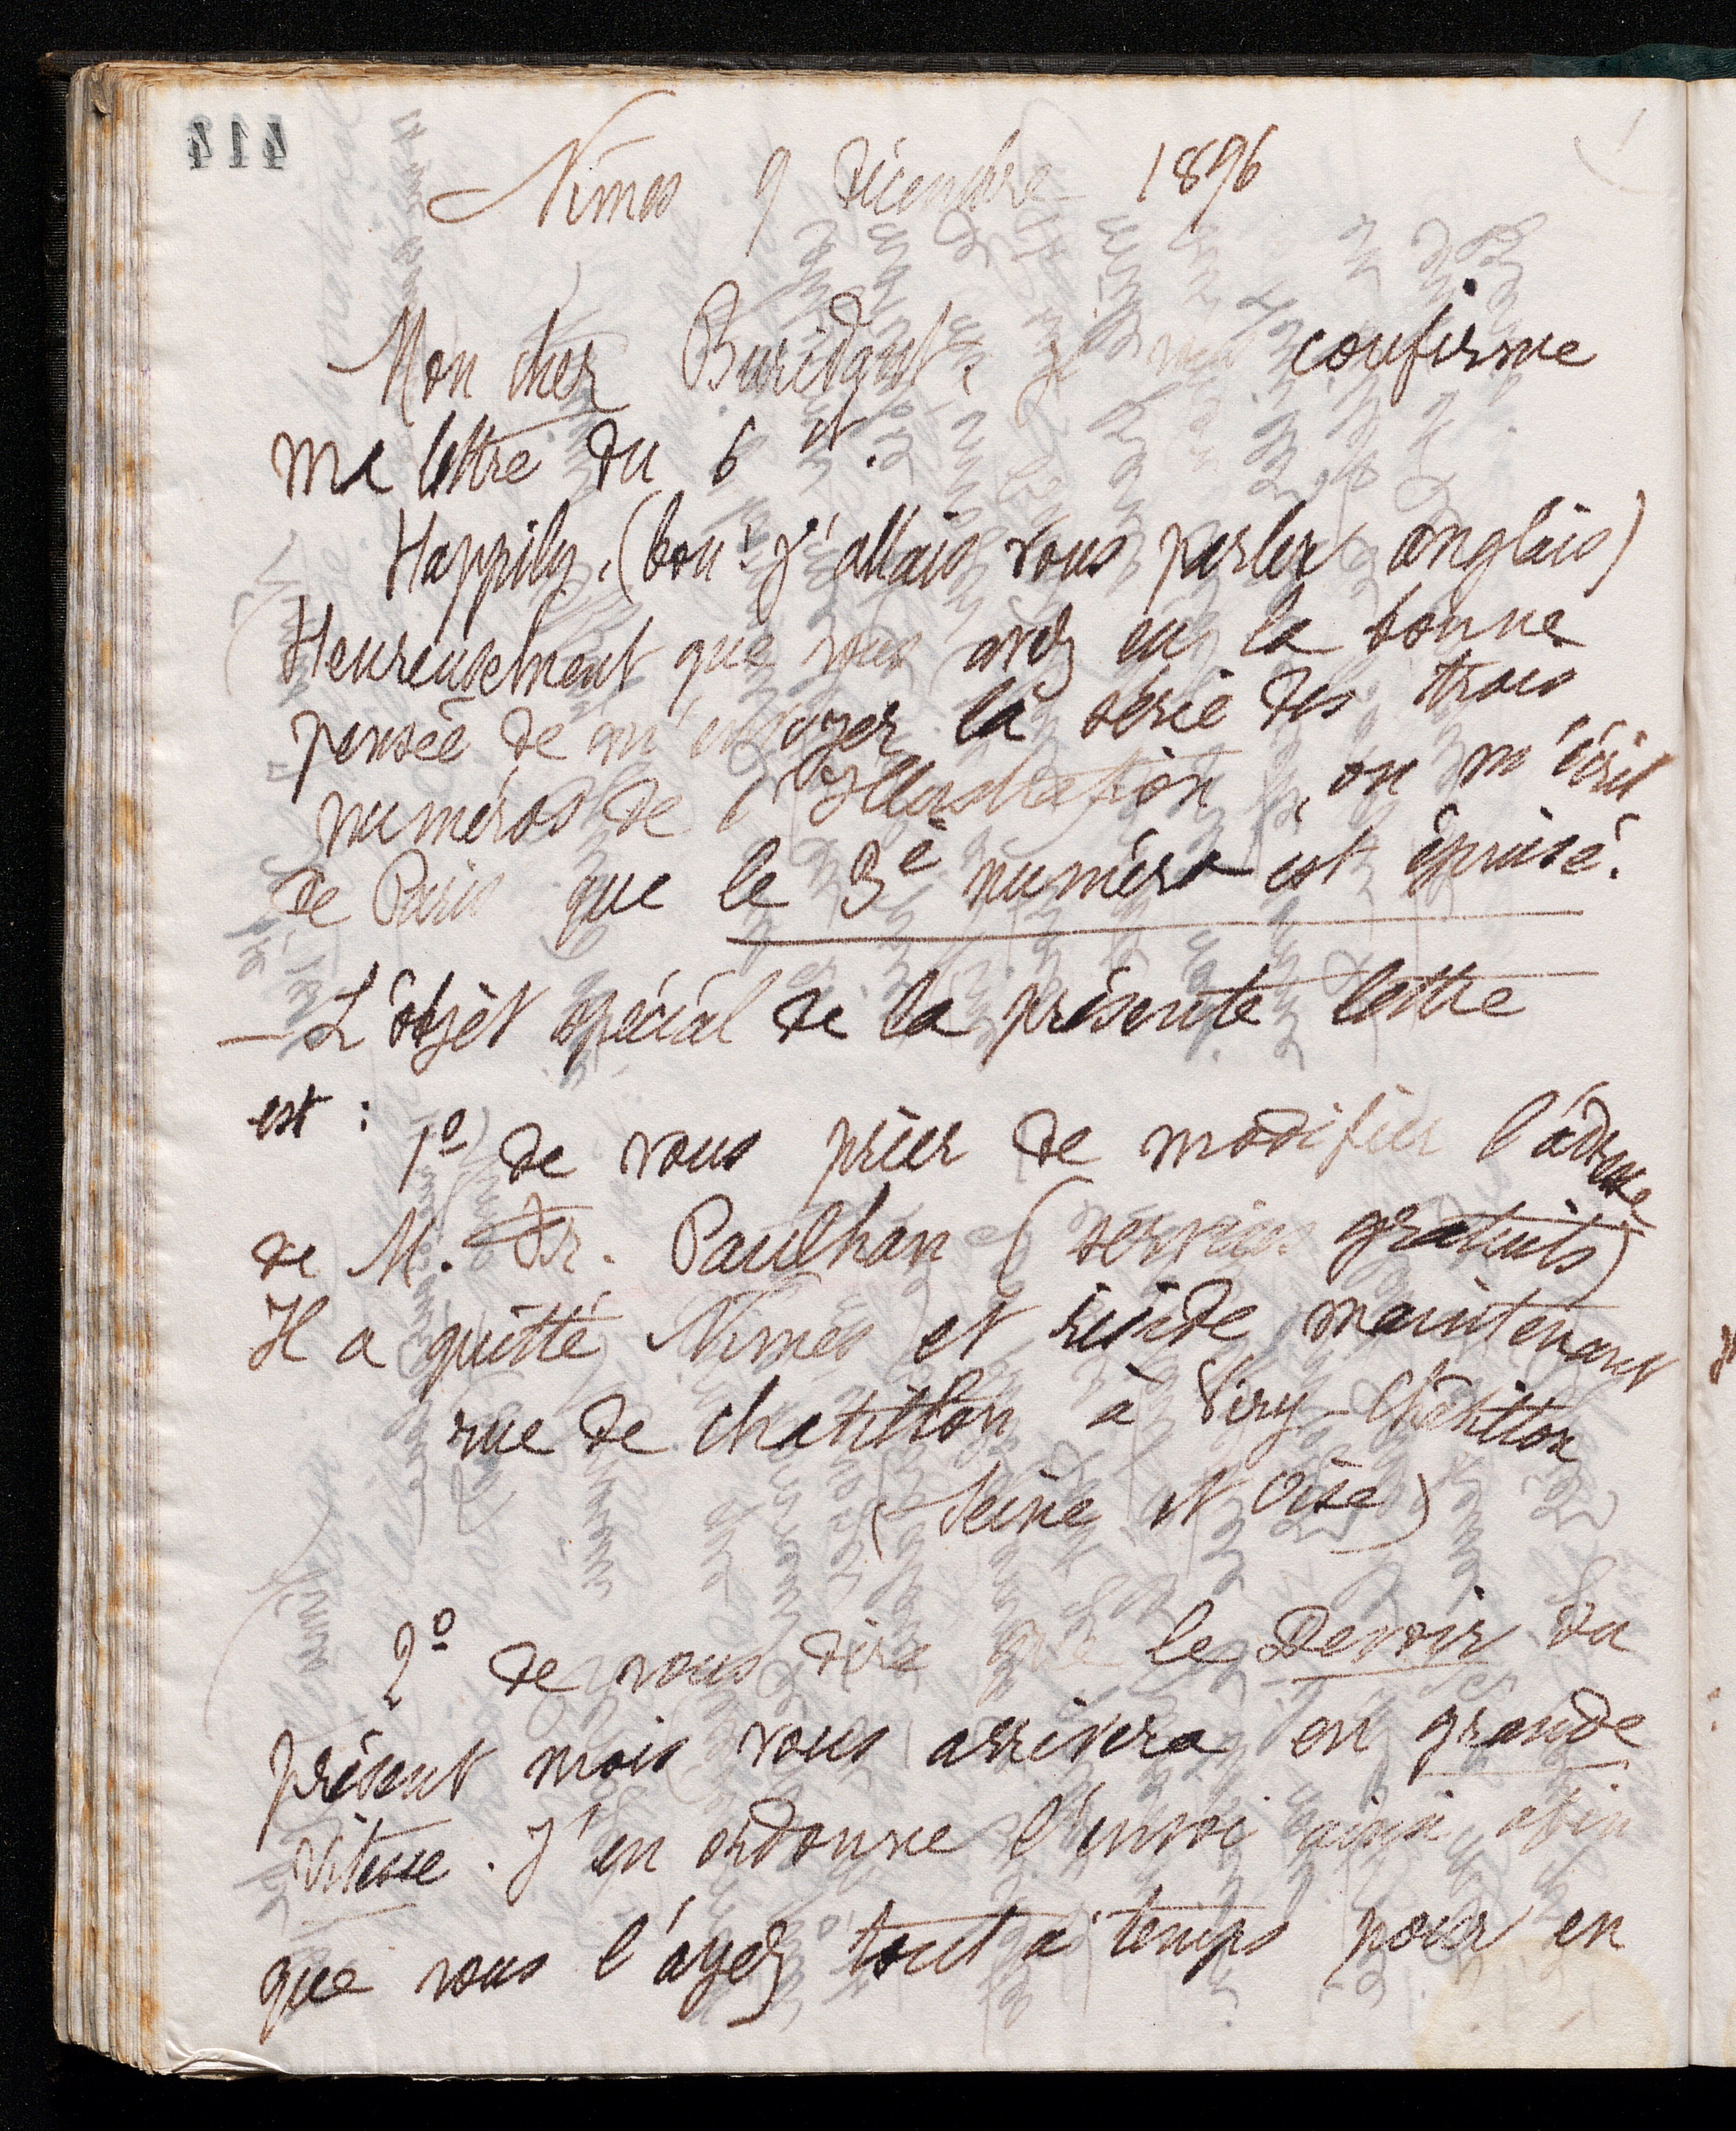 414
Nîmes 9 Décembre 1896
Mon cher Buridant, je vous confirme
ma lettre du 6 ct.
Happily. (bon! j'allais vous parler anglais)
Heureusement que vous avez eu la bonne
pensée de m'envoyer la série des trois
numéros de l'Illustration, on m'écrit
de Paris que le 3e numéro est épuisé.
— L'objet spécial de la présente lettre
est :
1º de vous prier de modifier l'adresse
de M. Fr. Paulhan (services gratuits)
Il a quitté Nîmes et réside maintenant
rue de Chatillon à Viry-Chatillon
(Seine et Oise)
2º de vous dire que le Devoir du
présent mois vous arrivera en grande
vitesse. J'en ordonne l'envoi ainsi afin
que vous l'ayez tout à temps pour en